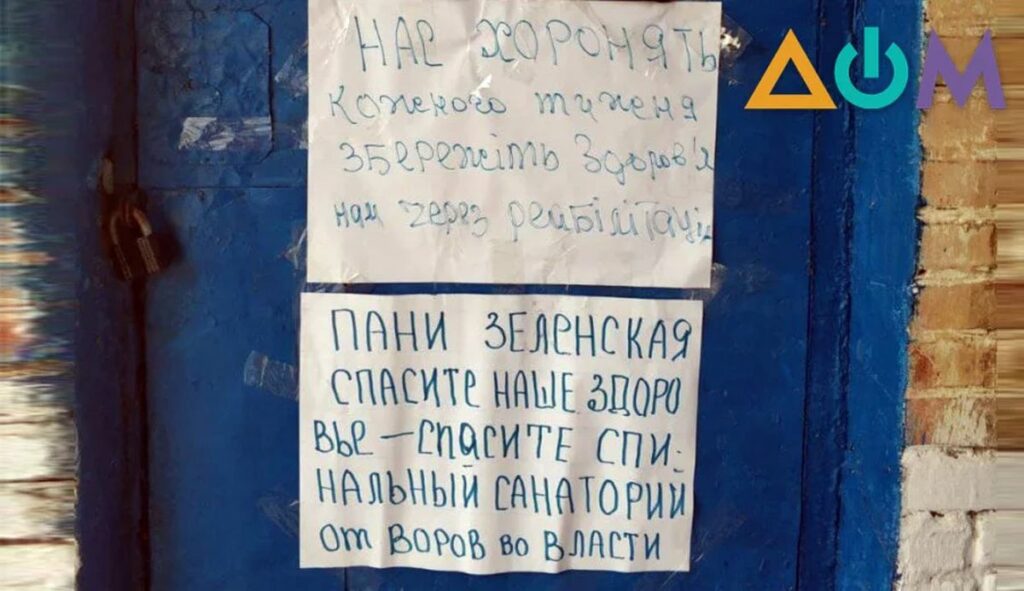 НАС ХОРОНЯТЬ
кожного тиженя
збережіть Здоров'я
нам через реабілітацію
ПАНИ ЗЕЛЕНСКАЯ
СПАСИТЕ НАШЕ ЗДОРО
ВЬЕ — СПАСИТЕ СПИ-
НАЛЬНЫЙ САНАТОРИЙ
от ВОРОВ во ВЛАСТИ
ДОМ